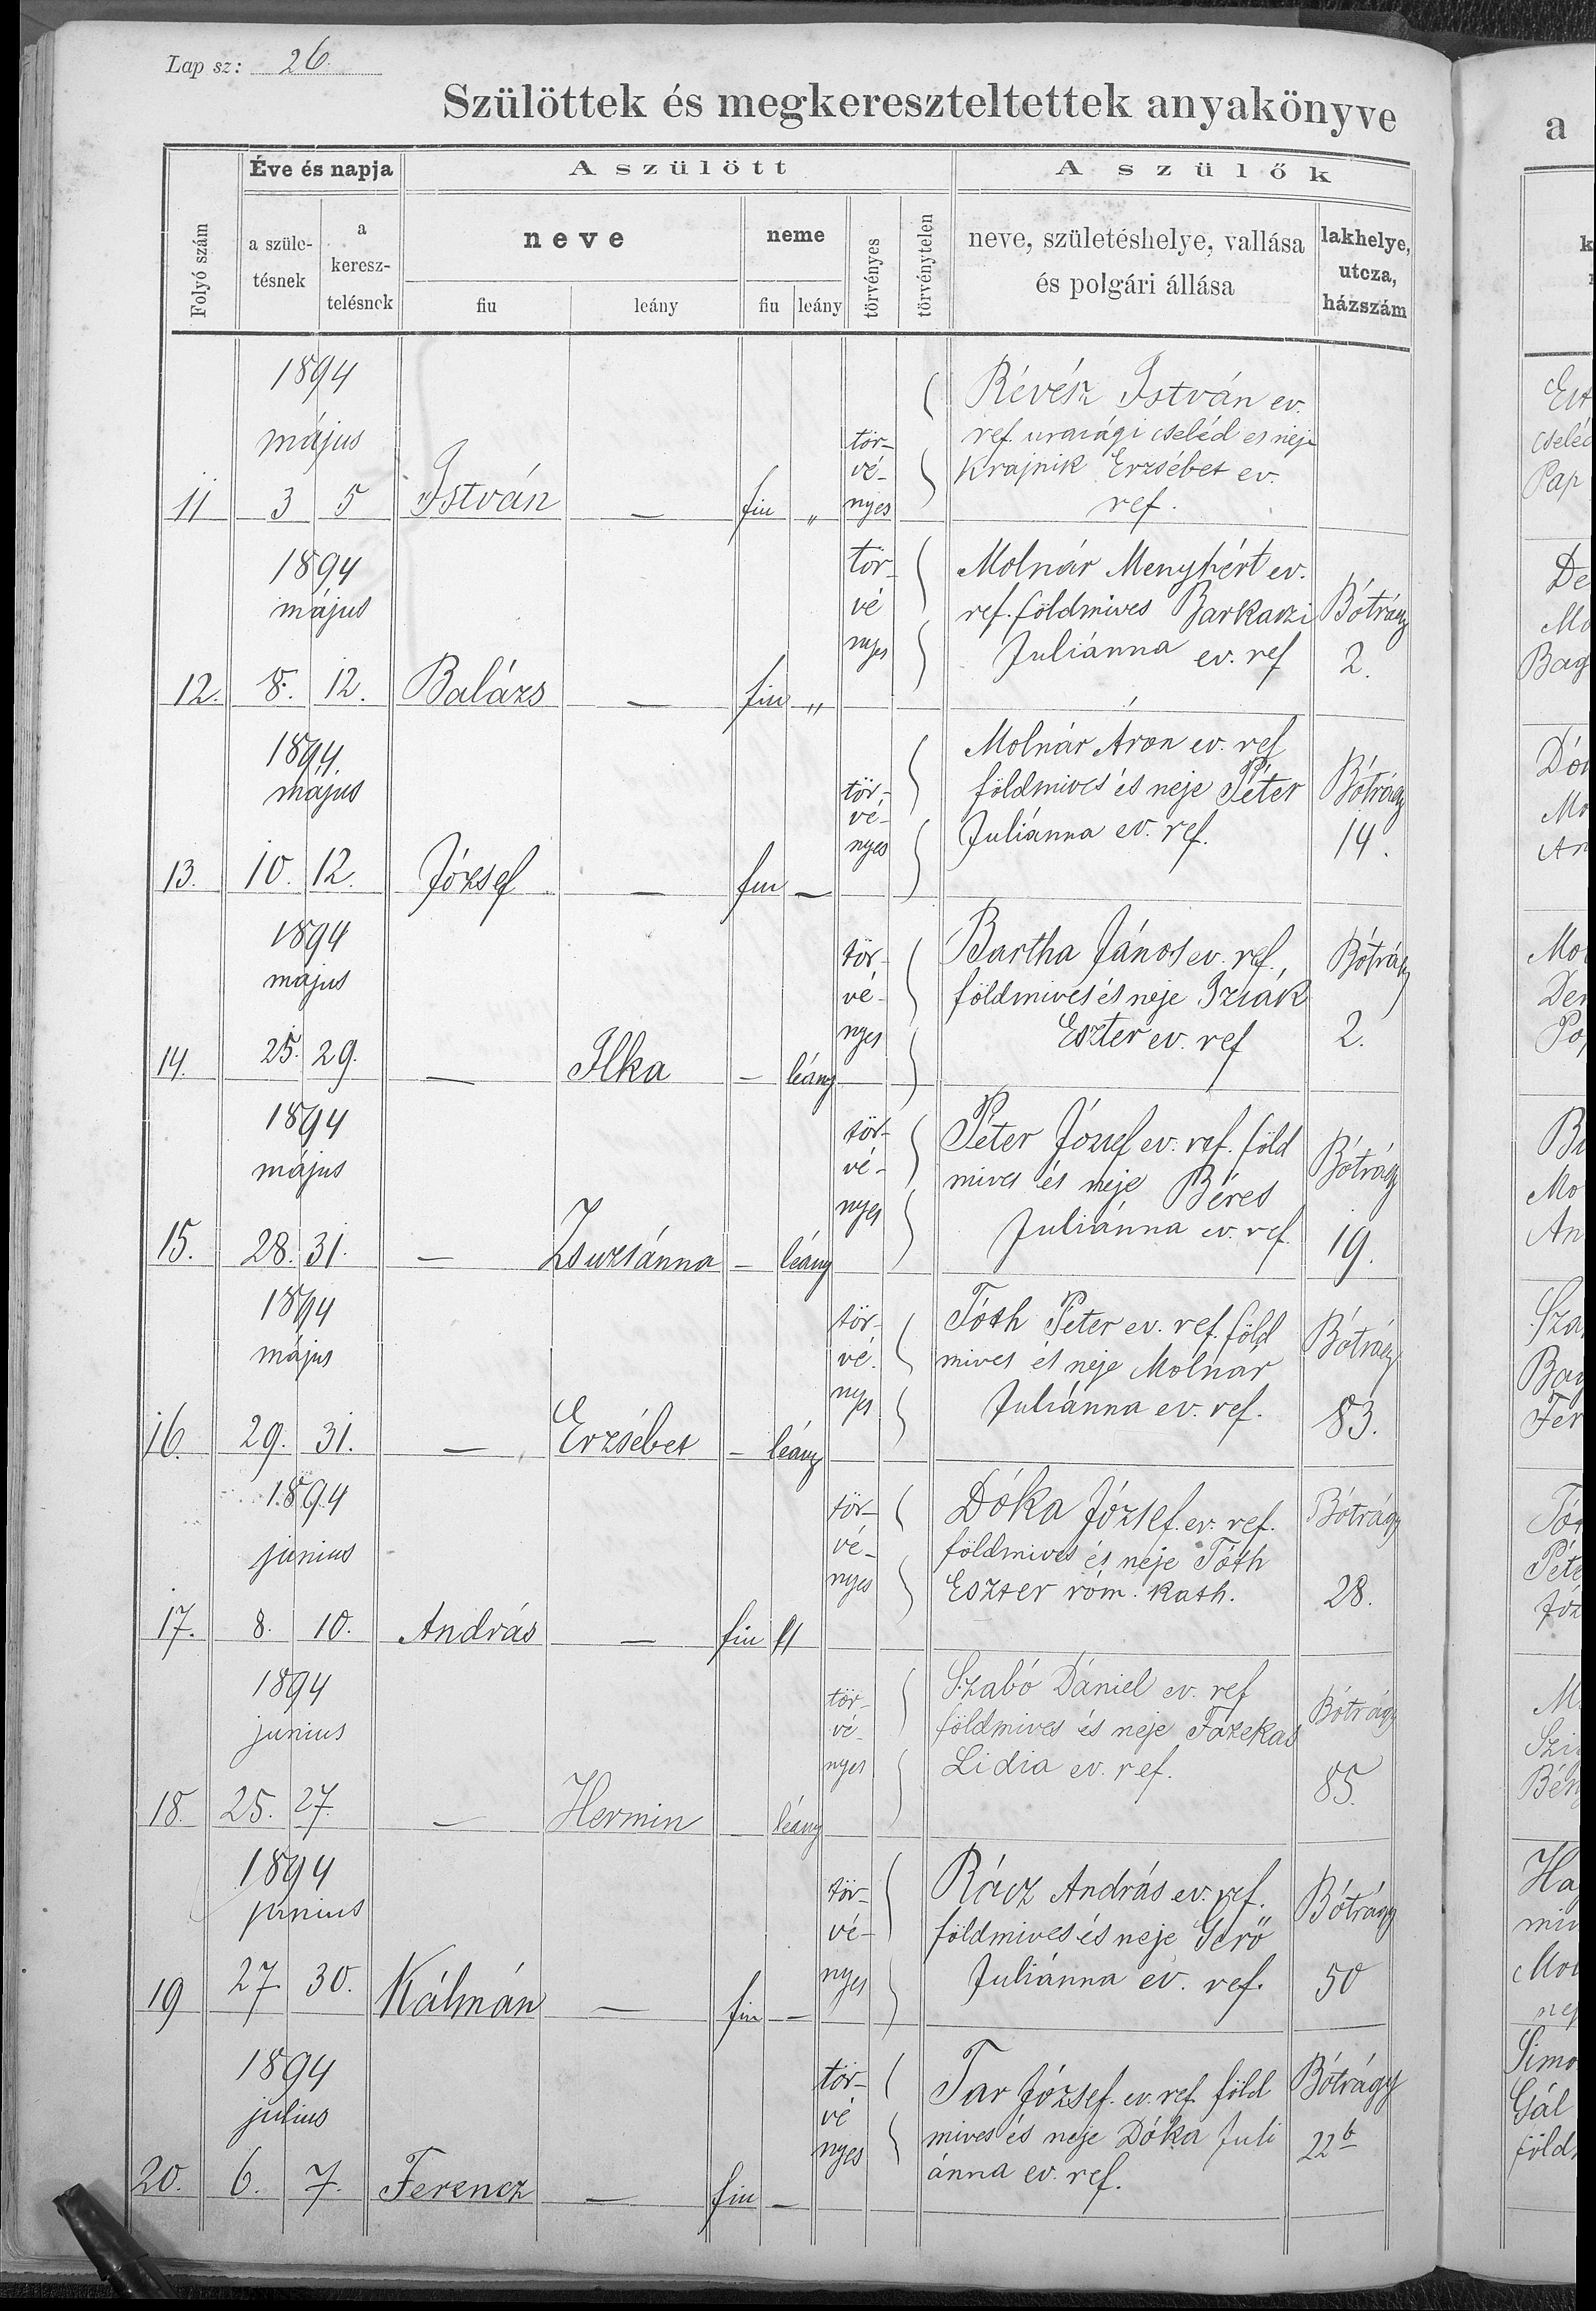 Lap sz: 26.
Szülöttek és megkereszteltettek anyakönyve
Folyó szám
Éve és napja
a születésnek
a keresztelésnek
A szülött
neve
fiu
leány
neme
fiu
leány
törvényes
törvénytelen
A szülők
neve, születéshelye, vallása
és polgári állása
lakhelye,
utcza,
házszám
1894
május
11 3 5 István — fiu „
tör-
vé-
nyes
Révész István ev.
ref. urasági cseléd es neje
Krajnik Erzsébet ev.
ref.
1894
május
12. 8. 12. Balázs — fiu „
tör-
vé
nyes
Molnár Menyhért ev.
ref. földmives Barkaszi
Juliánna ev. ref
Bótrágy
2.
1894.
május
13. 10. 12. József — fiu —
tör-
vé-
nyes
Molnár Áron ev. ref
földmives és neje Péter
Juliánna ev. ref.
Bótrágy
14.
1894
május
14. 25. 29. — Ilka — leány
tör-
vé-
nyes
Bartha János ev. ref.
földmives és neje Izsák
Eszter ev. ref
Bótrágy
2.
1894
május
15. 28. 31. — Zsuzsánna — leány
tör-
vé-
nyes
Péter József ev. ref. föld
mives és neje Béres
Juliánna ev. ref.
Bótrágy
19.
1894
május
16. 29. 31. — Erzsébet — leány
tör-
vé.
nyes
Tóth Péter ev. ref. föld
mives és neje Molnár
Juliánna ev. ref.
Bótrágy
83.
1894
junius
17. 8. 10. András — fiu „
tör-
vé-
nyes
Dóka József ev. ref.
földmives és neje Tóth
Eszter róm. kath.
Bótrágy
28.
1894
junius
18. 25. 27. — Hermin — leány
tör-
vé-
nyes
Szabó Dániel ev. ref
földmives és neje Fazekas
Lidia ev. ref.
Bótrágy
85.
1894
junius
19 27. 30. Kálmán — fiu —
tör-
vé-
nyes
Rácz András ev. ref.
földmives és neje Gerő
Juliánna ev. ref.
Bótrágy
50
1894
julius
20. 6. 7. Ferencz — fiu —
tör-
vé
nyes
Tar József ev. ref. föld
mives és neje Dóka Juli
ánna ev. ref.
Bótrágy
22b
a